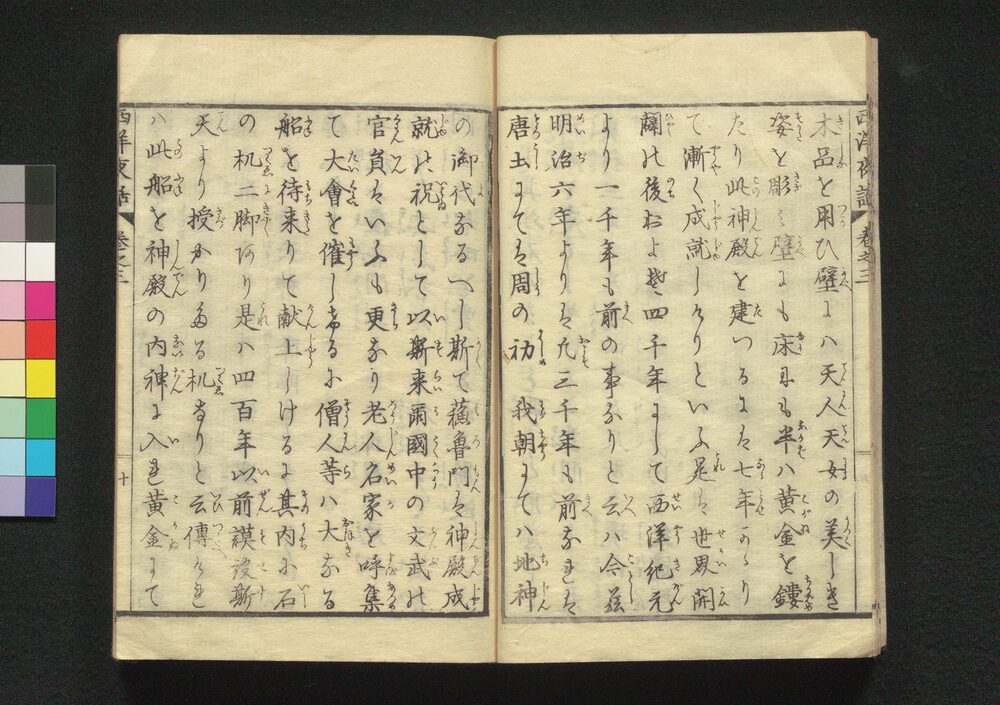 西洋夜話 巻之三
木品を用ひ壁にハ天人天女の美しき
姿を彫ミ壁にも床にも半ハ黄金を鏤
たり此神殿を建つるには七年かゝり
て漸く成就しけりといふ是は世界開
闢の後およそ四千年にして西洋紀元
より一千年も前の事なりと云ハ今茲
明治六年よりは凡三千年も前なれは
唐土にては周の初 我朝にてハ地神
の御代なるへし斯て蘓魯門は神殿成
就の祝として以斯来爾國中の文武の
官員はいふも更なり老人名家を呼集
て大會を催しけるに僧人等ハ大なる
船を待来りて献上しけるに其内に石
の机二脚あり是ハ四百年以前謨設斯
天より授かりたる机なりと云傳けれ
ハ此船を神殿の内神に入れ黄金にて
西洋夜話 巻之三
十